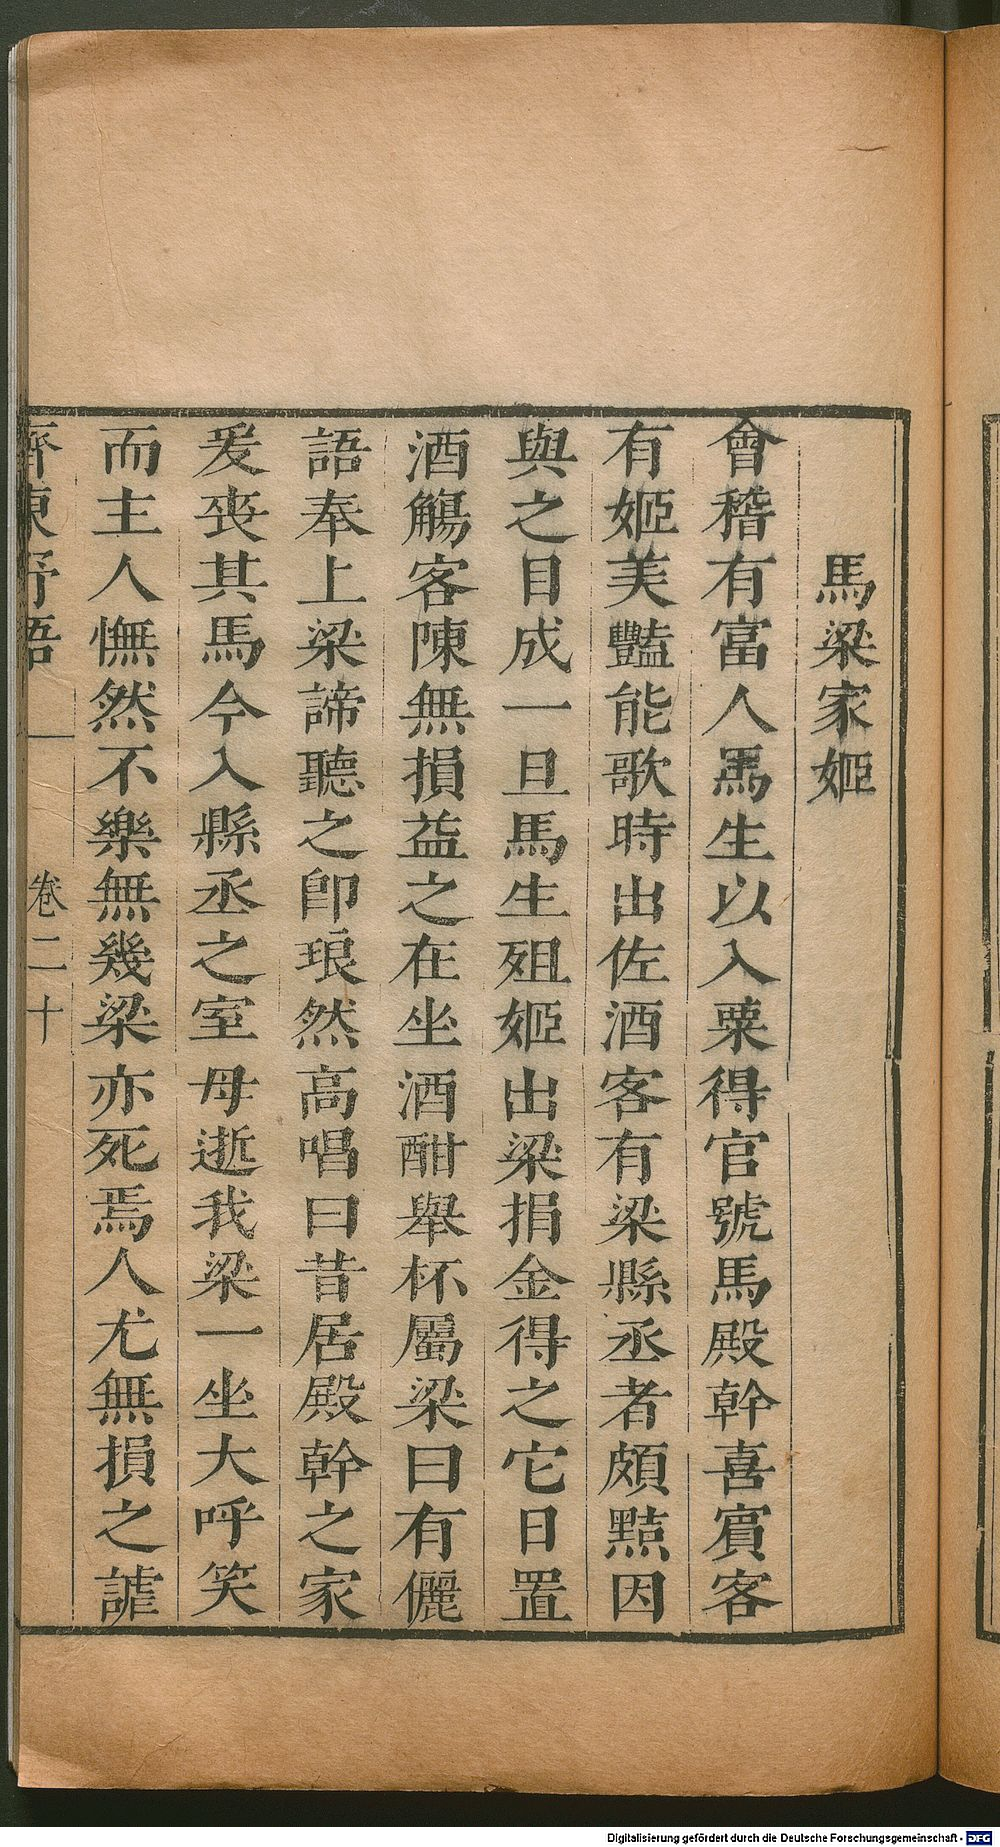 馬梁家姬
會稽有富人馬生以入粟得官號馬殿幹喜賓客
有姬美豔能歌時出佐酒客有梁縣丞者頗黠因
與之目成一旦馬生殂姬出梁捐金得之它日置
酒觴客陳無損益之在坐酒酣舉杯屬梁曰有儷
語奉上梁諦聽之卽琅然高唱曰昔居殿幹之家
爰喪其馬今入縣丞之室毋逝我梁一坐大呼笑
而主人憮然不樂無幾梁亦死焉人尤無損之謔
齊東野語
卷二十
Digitalisierung gefördert durch die Deutsche Forschungsgemeinschaft - DFG